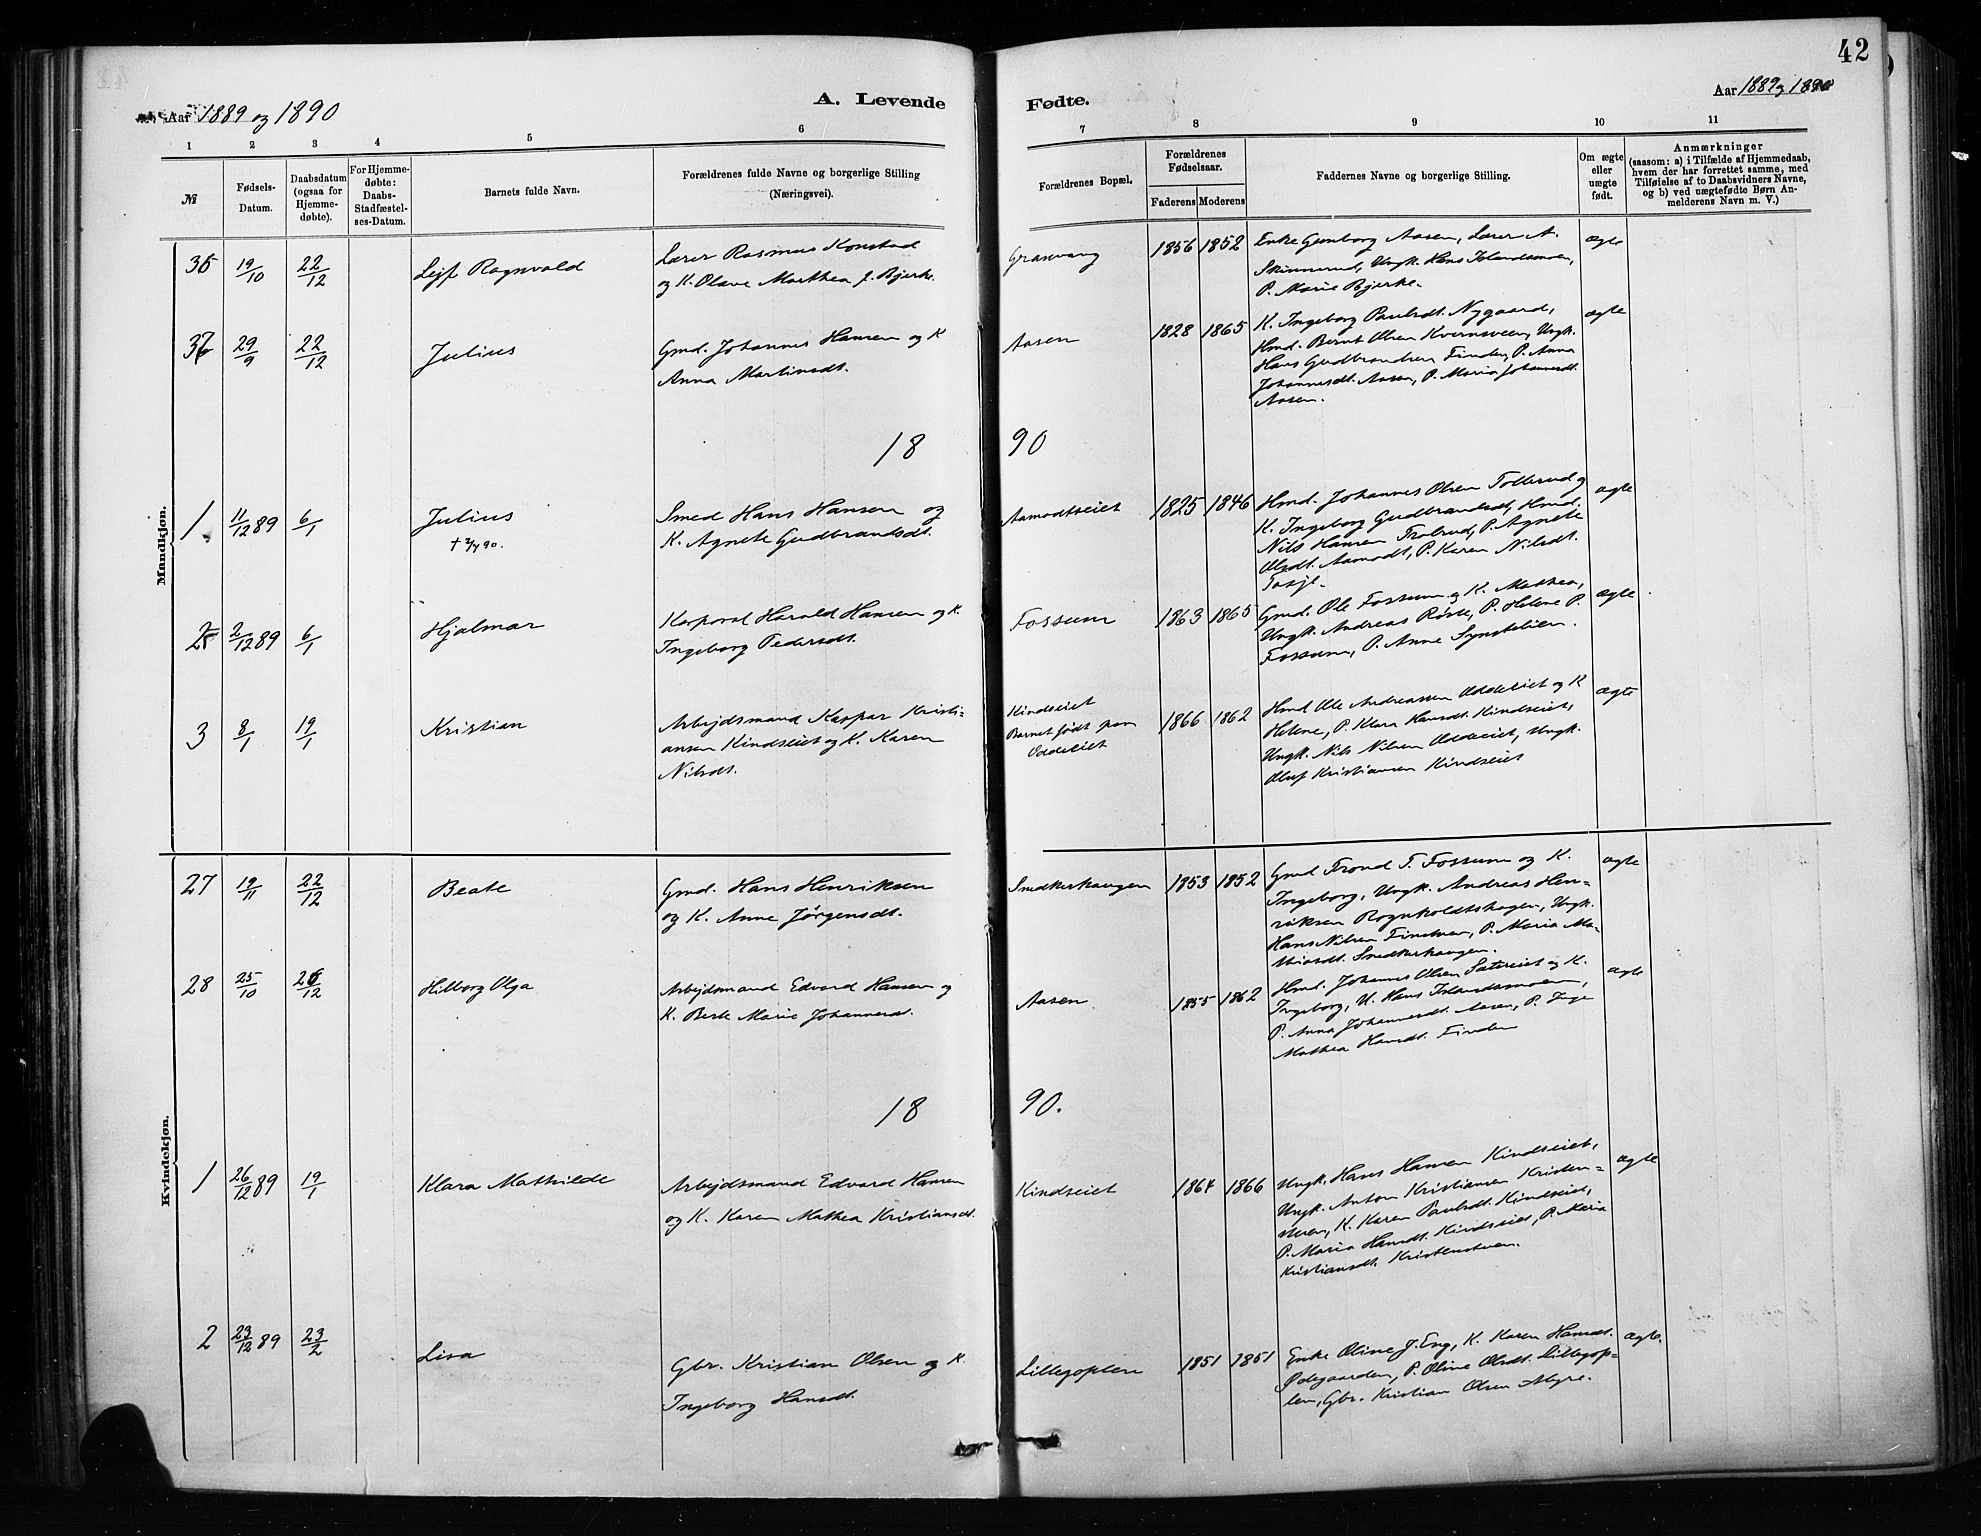 42
Aar 1889 og 1890
A. Levende
Fødte.
Aar 1889 og 1890
1 2 3 4 5 6 7 8 9 10 11
№
Fødsels-
Datum.
Daabsdatum
(ogsaa for
Hjemme-
døbte).
For Hjemme-
døbte:
Daabs-
Stadfæstel-
ses-Datum.
Barnets fulde Navn.
Forældrenes fulde Navne og borgerlige Stilling
(Næringsvei).
Forældrenes Bopæl.
Forældrenes
Fødselsaar.
Faderens Moderens
Faddernes Navne og borgerlige Stilling.
Om ægte
eller
uægte
født.
Anmærkninger
(saasom: a) i Tilfælde af Hjemmedaab,
hvem der har forrettet samme, med
Tilføielse af to Daabsvidners Navne,
og b) ved uægtefødte Børn An-
melderens Navn m. V.)
Mandkjøn.
35 19/10 22/12 Lejf Ragnvald
Lærer Rasmus Konstad
og K. Olave Marthea J. Bjerke.
Granvang 1856 1852
Enke Gunborg Aasen, Lærer A.
Skinnerud, Ungk. Hans Islandsmoen,
P. Marie Bjerke.
ægte
36 29/9 22/12 Julius
Gmd. Johannes Hansen og K
Anna Martinsdt.
Aasen 1828 1865
K. Ingeborg Paulsdt. Nygaard,
Hmd. Bernt Olsen Kvernsveen, Ungk.
Hans Gudbrandsen Finden, P. Anna
Johannesdt. Aasen, P. Maria Johannesdt.
Aasen.
ægte
18 90
1 11/12 89 6/1 Julius
† 2/4 90.
Smed Hans Hansen og
K. Agnete Gudbrandsdt.
Aamodtseiet 1825 1846
Hmd. Johannes Olsen Tollerud og
K. Ingeborg Gudbrandsdt, Hmd.
Nils Hansen Frølrud, P. Agnete
Olsdt. Aamodt, P. Karen Nilsdt.
ægte
2 2/12 89 6/1 Hjalmar
Korporal Harald Hansen og K.
Ingeborg Pedersdt.
Fossum 1863 1865
Gmd. Ole Fossum og K. Mathea,
Ungk. Andreas Røste, P. Helene P.
Fossum, P. Anne Synstelien.
ægte
3 8/1 19/1 Kristian
Arbejdsmand Kaspar Kristi-
ansen Kindseiet og K. Karen
Nilsdt.
Kindseiet
Barnet født paa
Oddeleiet
1866 1862
Hmd Ole Andreassen Oddeleiet og K
Helene, P. Klara Hansdt. Kindseiet,
Ungk. Nils Nilsen Oddeleiet, Ungk.
Oluf Kristiansen Kindseiet
ægte
Kvindekjøn.
27 19/11 22/12 Beate
Gmd. Hans Henriksen
og K. Anne Jørgensdt.
Snedkerhaugen 1853 1852
Gmd Trond T. Fossum og K.
Ingeborg, Ungk. Andreas Hen-
riksen Rognholdtshagen, Ungk.
Hans Nilsen Findveen, P. Maria Ma-
thiasdt. Snedkerhaugen.
ægte
28 25/10 26/12 Hilborg Olga
Arbejdsmand Edvard Hansen og
K. Berte Marie Johannesdt.
Aasen 1855 1862
Hmd. Johannes Olsen Sætereiet og K.
Ingeborg, U. Hans Islandsmoen,
P. Anna Johannesdt. Aasen, P. Inge
Mathea Hansdt. Finden
ægte
18 90.
1 26/12 89 19/1 Klara Mathilde
Arbejdsmand Edvard Hansen
og K. Karen Mathea Kristiansdt.
Kindseiet 1864 1866
Ungk. Hans Hansen Kindseiet,
Ungk. Anton Kristiansen Kristen-
stuen, K. Karen Paulsdt. Kindseiet,
P. Maria Hansdt. Kindseiet, P. Maria
Kristiansdt. Kristenstuen.
ægte
2 23/12 89 23/2 Lisa
Gbr. Kristian Olsen og K.
Ingeborg Hansdt.
Lillegoplen 1851 1851
Enke Oline J. Eng, K. Karen Hansdt.
Ødegaarden, P. Oline Olsdt. Lillegop-
len, Gbr. Kristian Olsen Myre.
ægte.